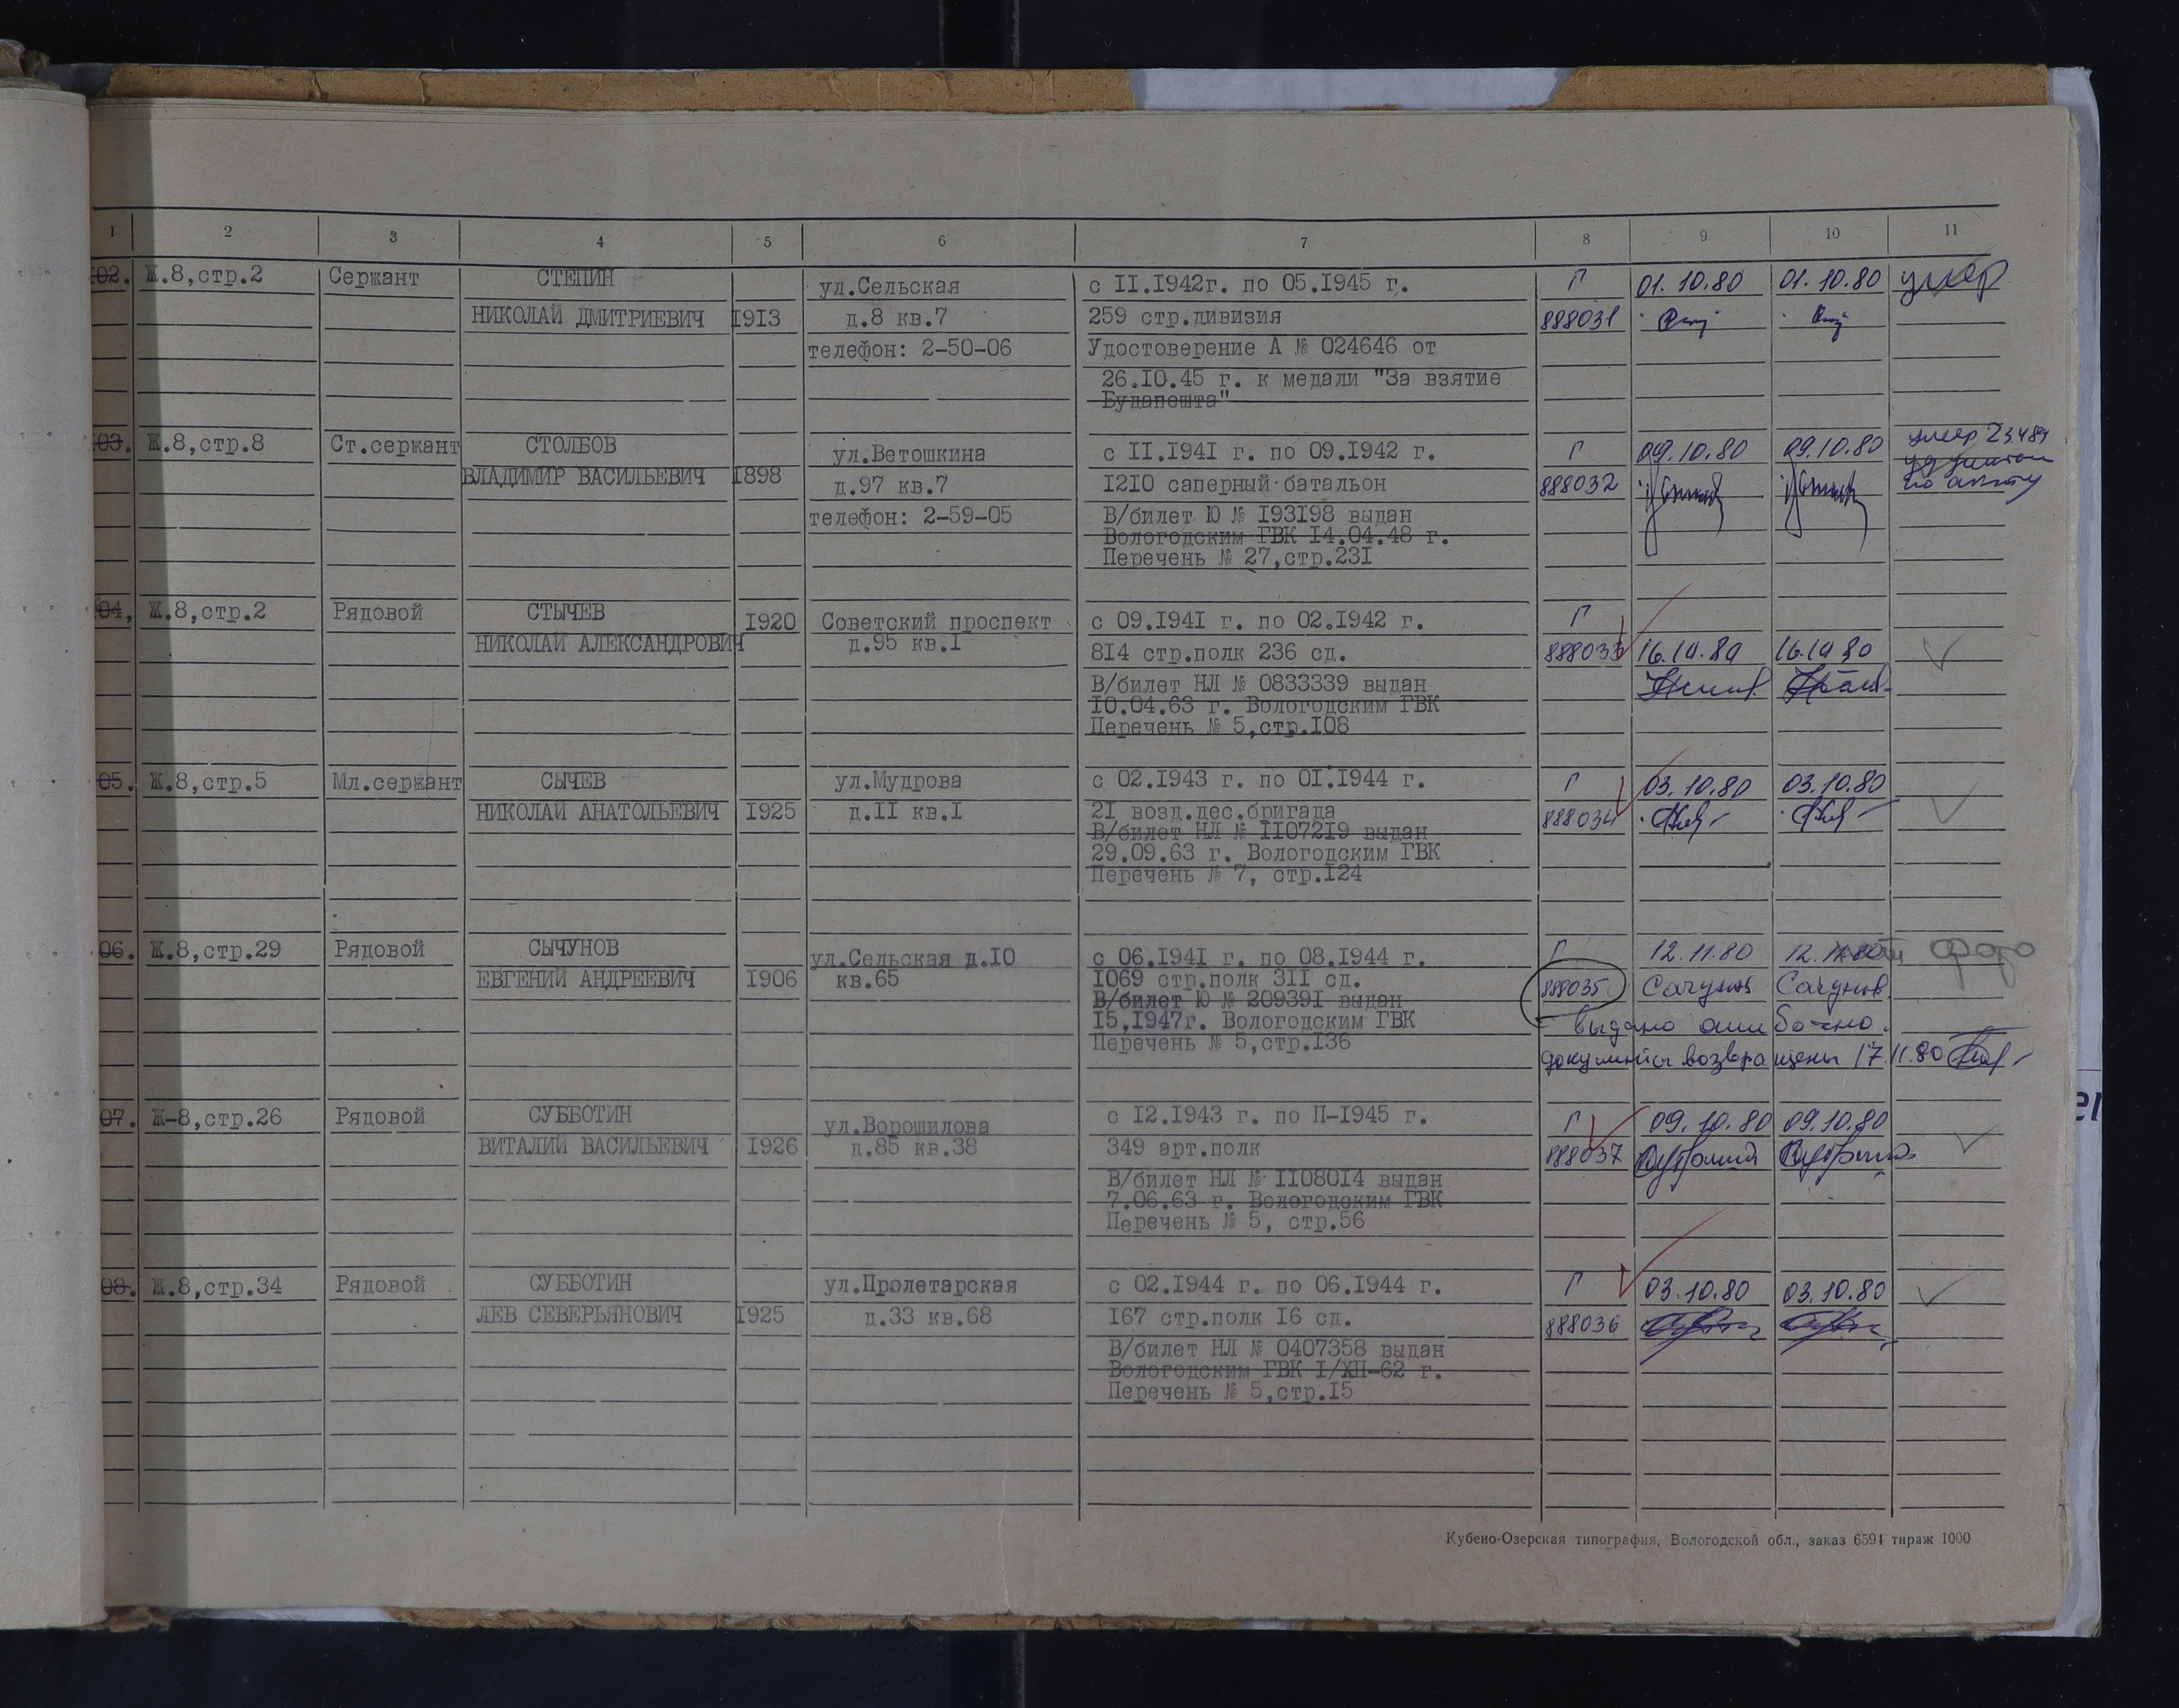 1 2 3 4 5 6 7 8 9 10 11
02. Ж.8,стр.2 Сержант СТЕПИН ул.Сельская с II.1942г. по 05.1945 г. Г 01.10.80 01.10.80 умер
НИКОЛАЙ ДМИТРИЕВИЧ 1913 д.8 кв.7 259 стр.дивизия 888031
телефон: 2-50-06 Удостоверение А № 024646 от
26.10.45 г. к медали "За взятие
Будапешта"
03. Ж.8,стр.8 Ст.сержант СТОЛБОВ ул.Ветошкина с II.1941 г. по 09.1942 г. Г 09.10.80 09.10.80 умер
ВЛАДИМИР ВАСИЛЬЕВИЧ 1898 д.97 кв.7 1210 саперный батальон 888032
телефон: 2-59-05 В/билет Ю № 193198 выдан
Вологодским ГВК 14.04.48 г.
Перечень № 27,стр.231
04, Ж.8,стр.2 Рядовой СТЫЧЕВ 1920 Советский проспект с 09.1941 г. по 02.1942 г. Г
НИКОЛАЙ АЛЕКСАНДРОВИЧ д.95 кв.I 814 стр.полк 236 сд. 888033 16.10.80 16.10 80
В/билет НЛ № 0833339 выдан
10.04.63 г. Вологодским ГВК
Перечень № 5,стр.108
05. Ж.8,стр.5 Мл.сержант СЫЧЕВ ул.Мудрова с 02.1943 г. по 01.1944 г. Г 03.10.80 03.10.80
НИКОЛАЙ АНАТОЛЬЕВИЧ 1925 д.II кв.I 21 возд.дес.бригада 888034
В/билет НЛ № 1107219 выдан
29.09.63 г. Вологодским ГВК
Перечень № 7, стр.124
06. Ж.8,стр.29 Рядовой СЫЧУНОВ ул.Сельская д.10 с 06.1941 г. по 08.1944 г. Г 12.11.80 12.11.80 фото
ЕВГЕНИЙ АНДРЕЕВИЧ 1906 кв.65 1069 стр.полк 311 сд. 888035
В/билет Ю № 209391 выдан
15,1947г. Вологодским ГВК выдано ошибочно.
Перечень № 5,стр.136 документы возвращены 17.11.80
07. Ж-8,стр.26 Рядовой СУББОТИН ул.Ворошилова с 12.1943 г. по П-1945 г. Г 09.10.80 09.10.80
ВИТАЛИЙ ВАСИЛЬЕВИЧ 1926 д.85 кв.38 349 арт.полк 888037
В/билет НЛ № 1108014 выдан
7.06.63 г. Вологодским ГВК
Перечень № 5, стр.56
08. Ж.8,стр.34 Рядовой СУББОТИН ул.Пролетарская с 02.1944 г. по 06.1944 г. Г 03.10.80 03.10.80
ЛЕВ СЕВЕРЬЯНОВИЧ 1925 д.33 кв.68 167 стр.полк 16 сд. 888036
В/билет НЛ № 0407358 выдан
Вологодским ГВК I/ХП-62 г.
Перечень № 5,стр.15
Кубено-Озерская типография, Вологодской обл., заказ 6594 тираж 1000